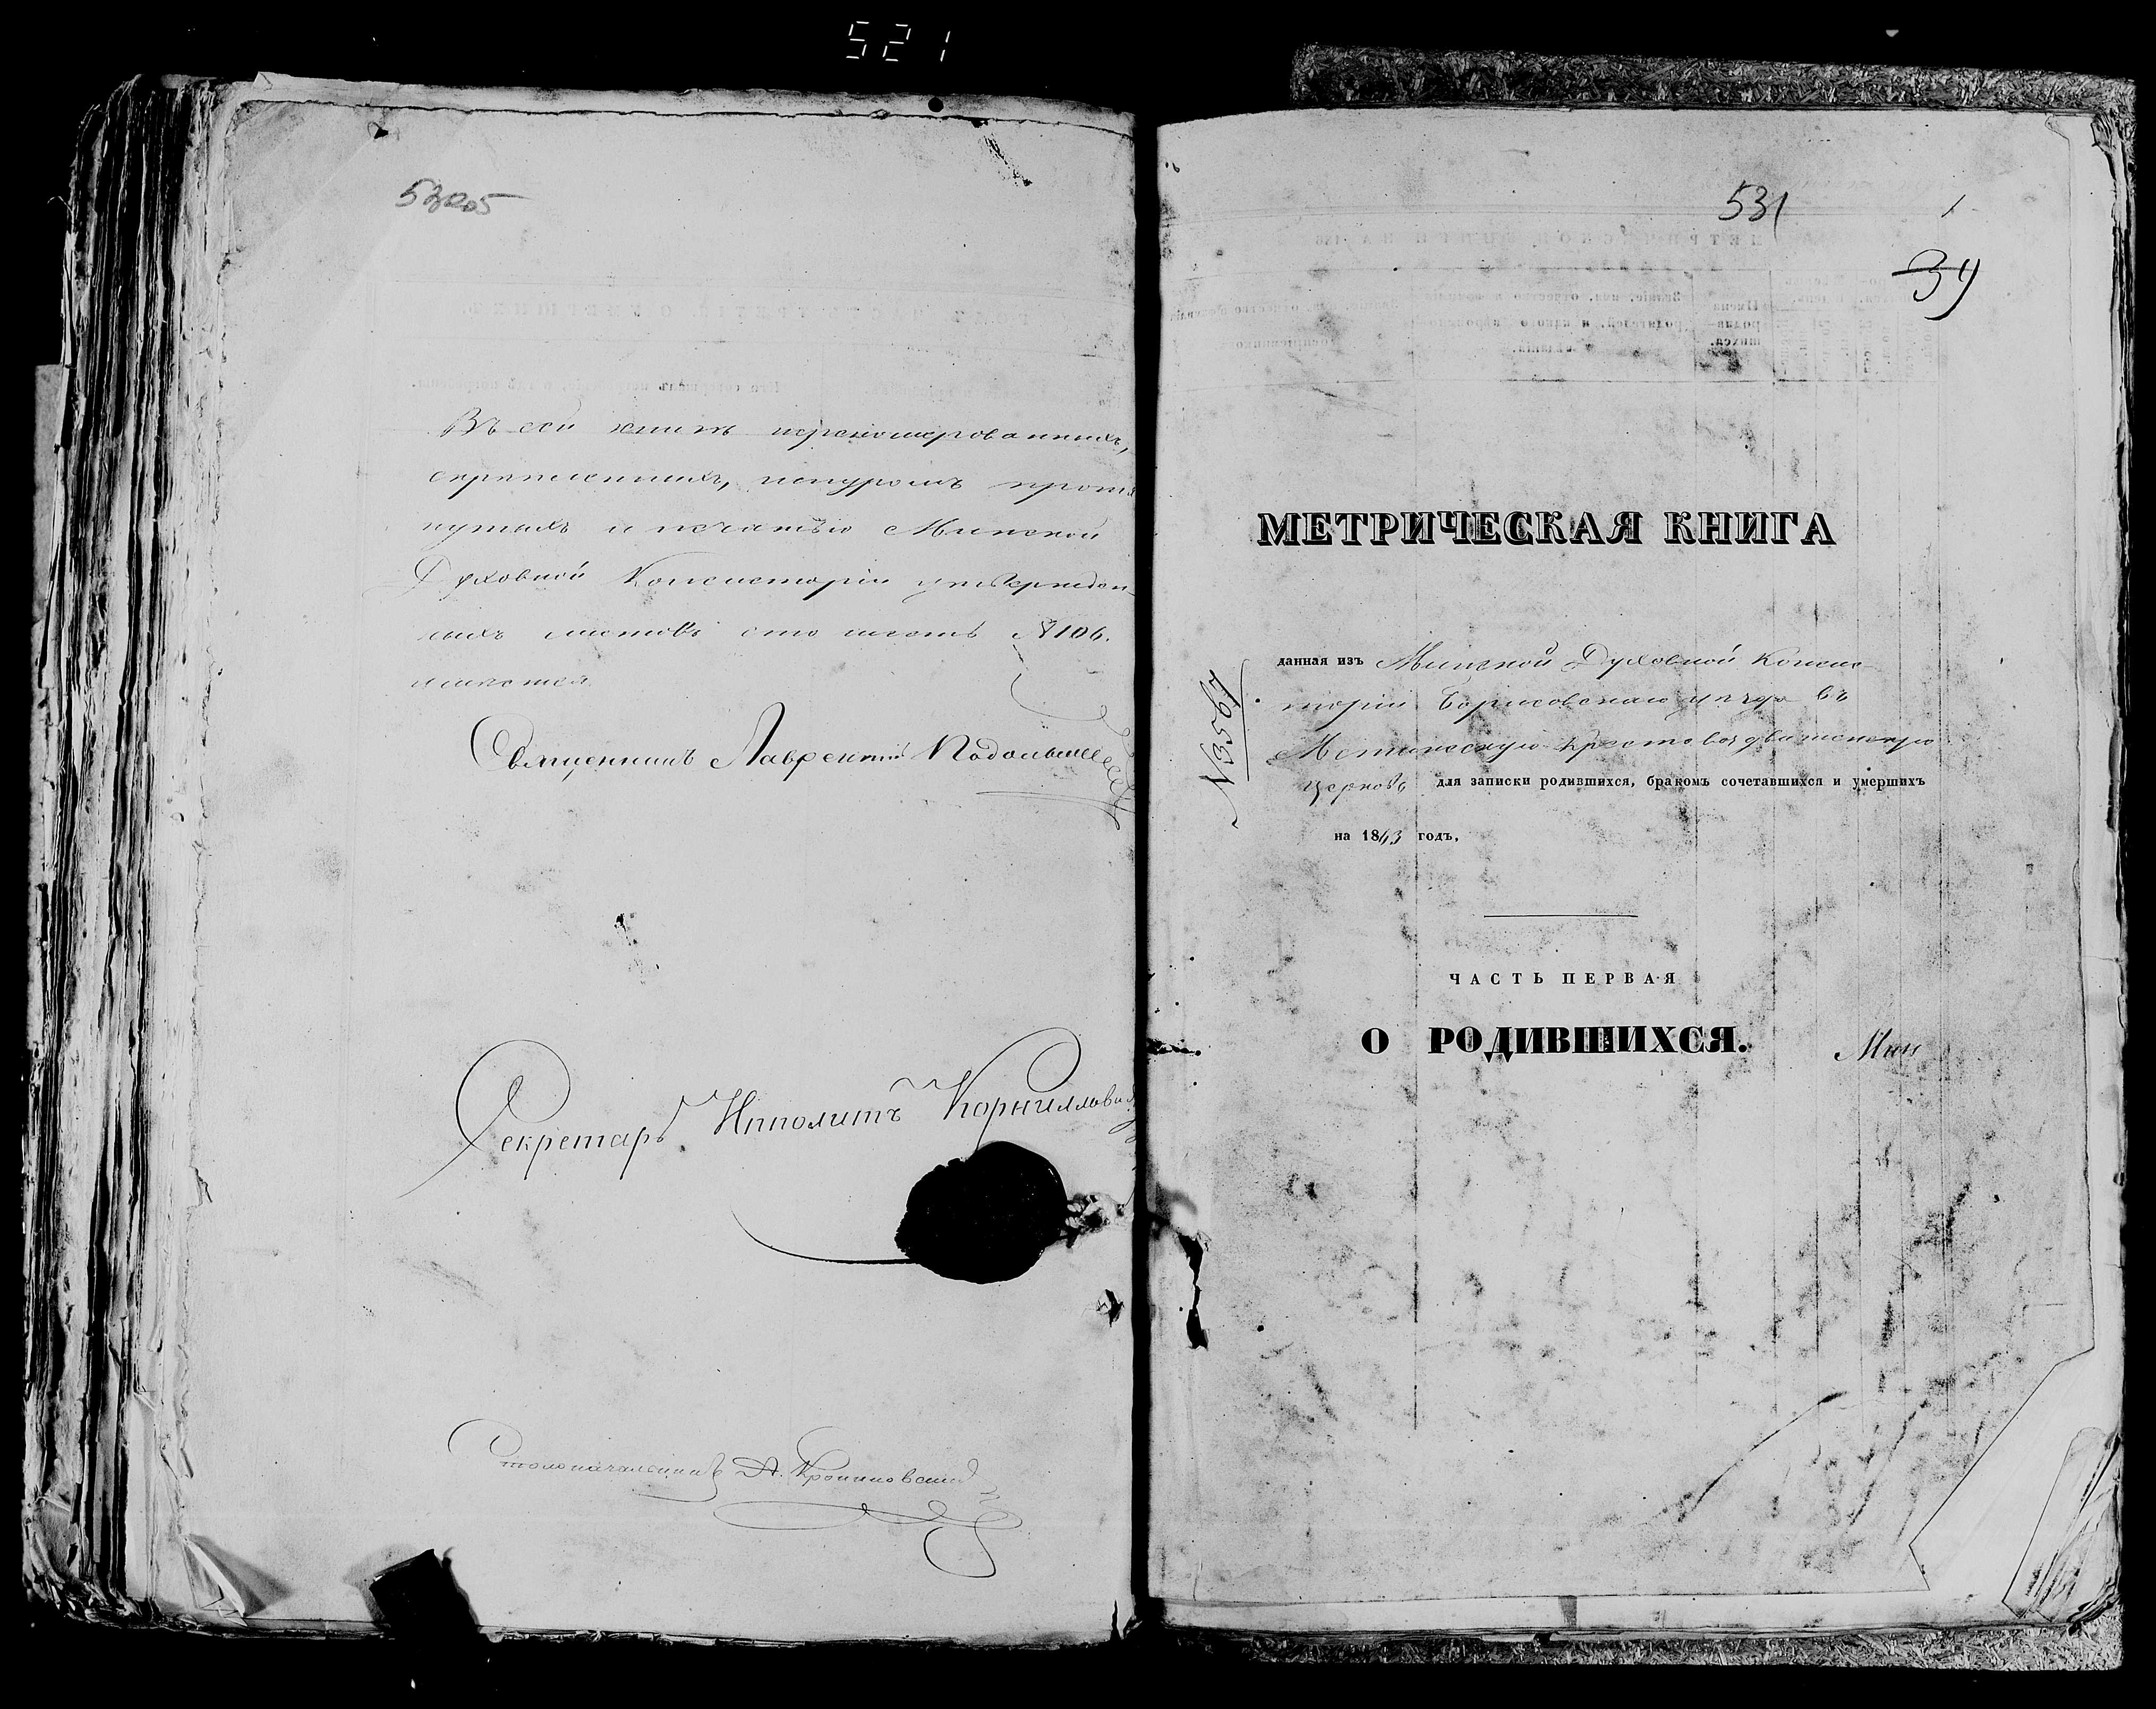 521
530об
Въ сей книгѣ перенумерованныхъ,
скрѣпленныхъ, шнуромъ протя
нутыхъ и печатью Минской
Духовной Консисторіи утвержден-
ныхъ листовъ сто шесть №106.
имѣется
Священникъ Лаврентій
Секретарь Ипполитъ Корниллови
Столоначальникъ А.
531
1
34
МЕТРИЧЕСКАЯ КНИГА
№3567
данная изъ Минской Духовной Консис-
торіи Борисовскаго уѣзда въ
Крестовоздвиженскую
церковь для записки родившихся, бракомъ сочетавшихся и умершихъ
на 1863 годъ.
ЧАСТЬ ПЕРВАЯ
О РОДИВШИХСЯ.
Мин